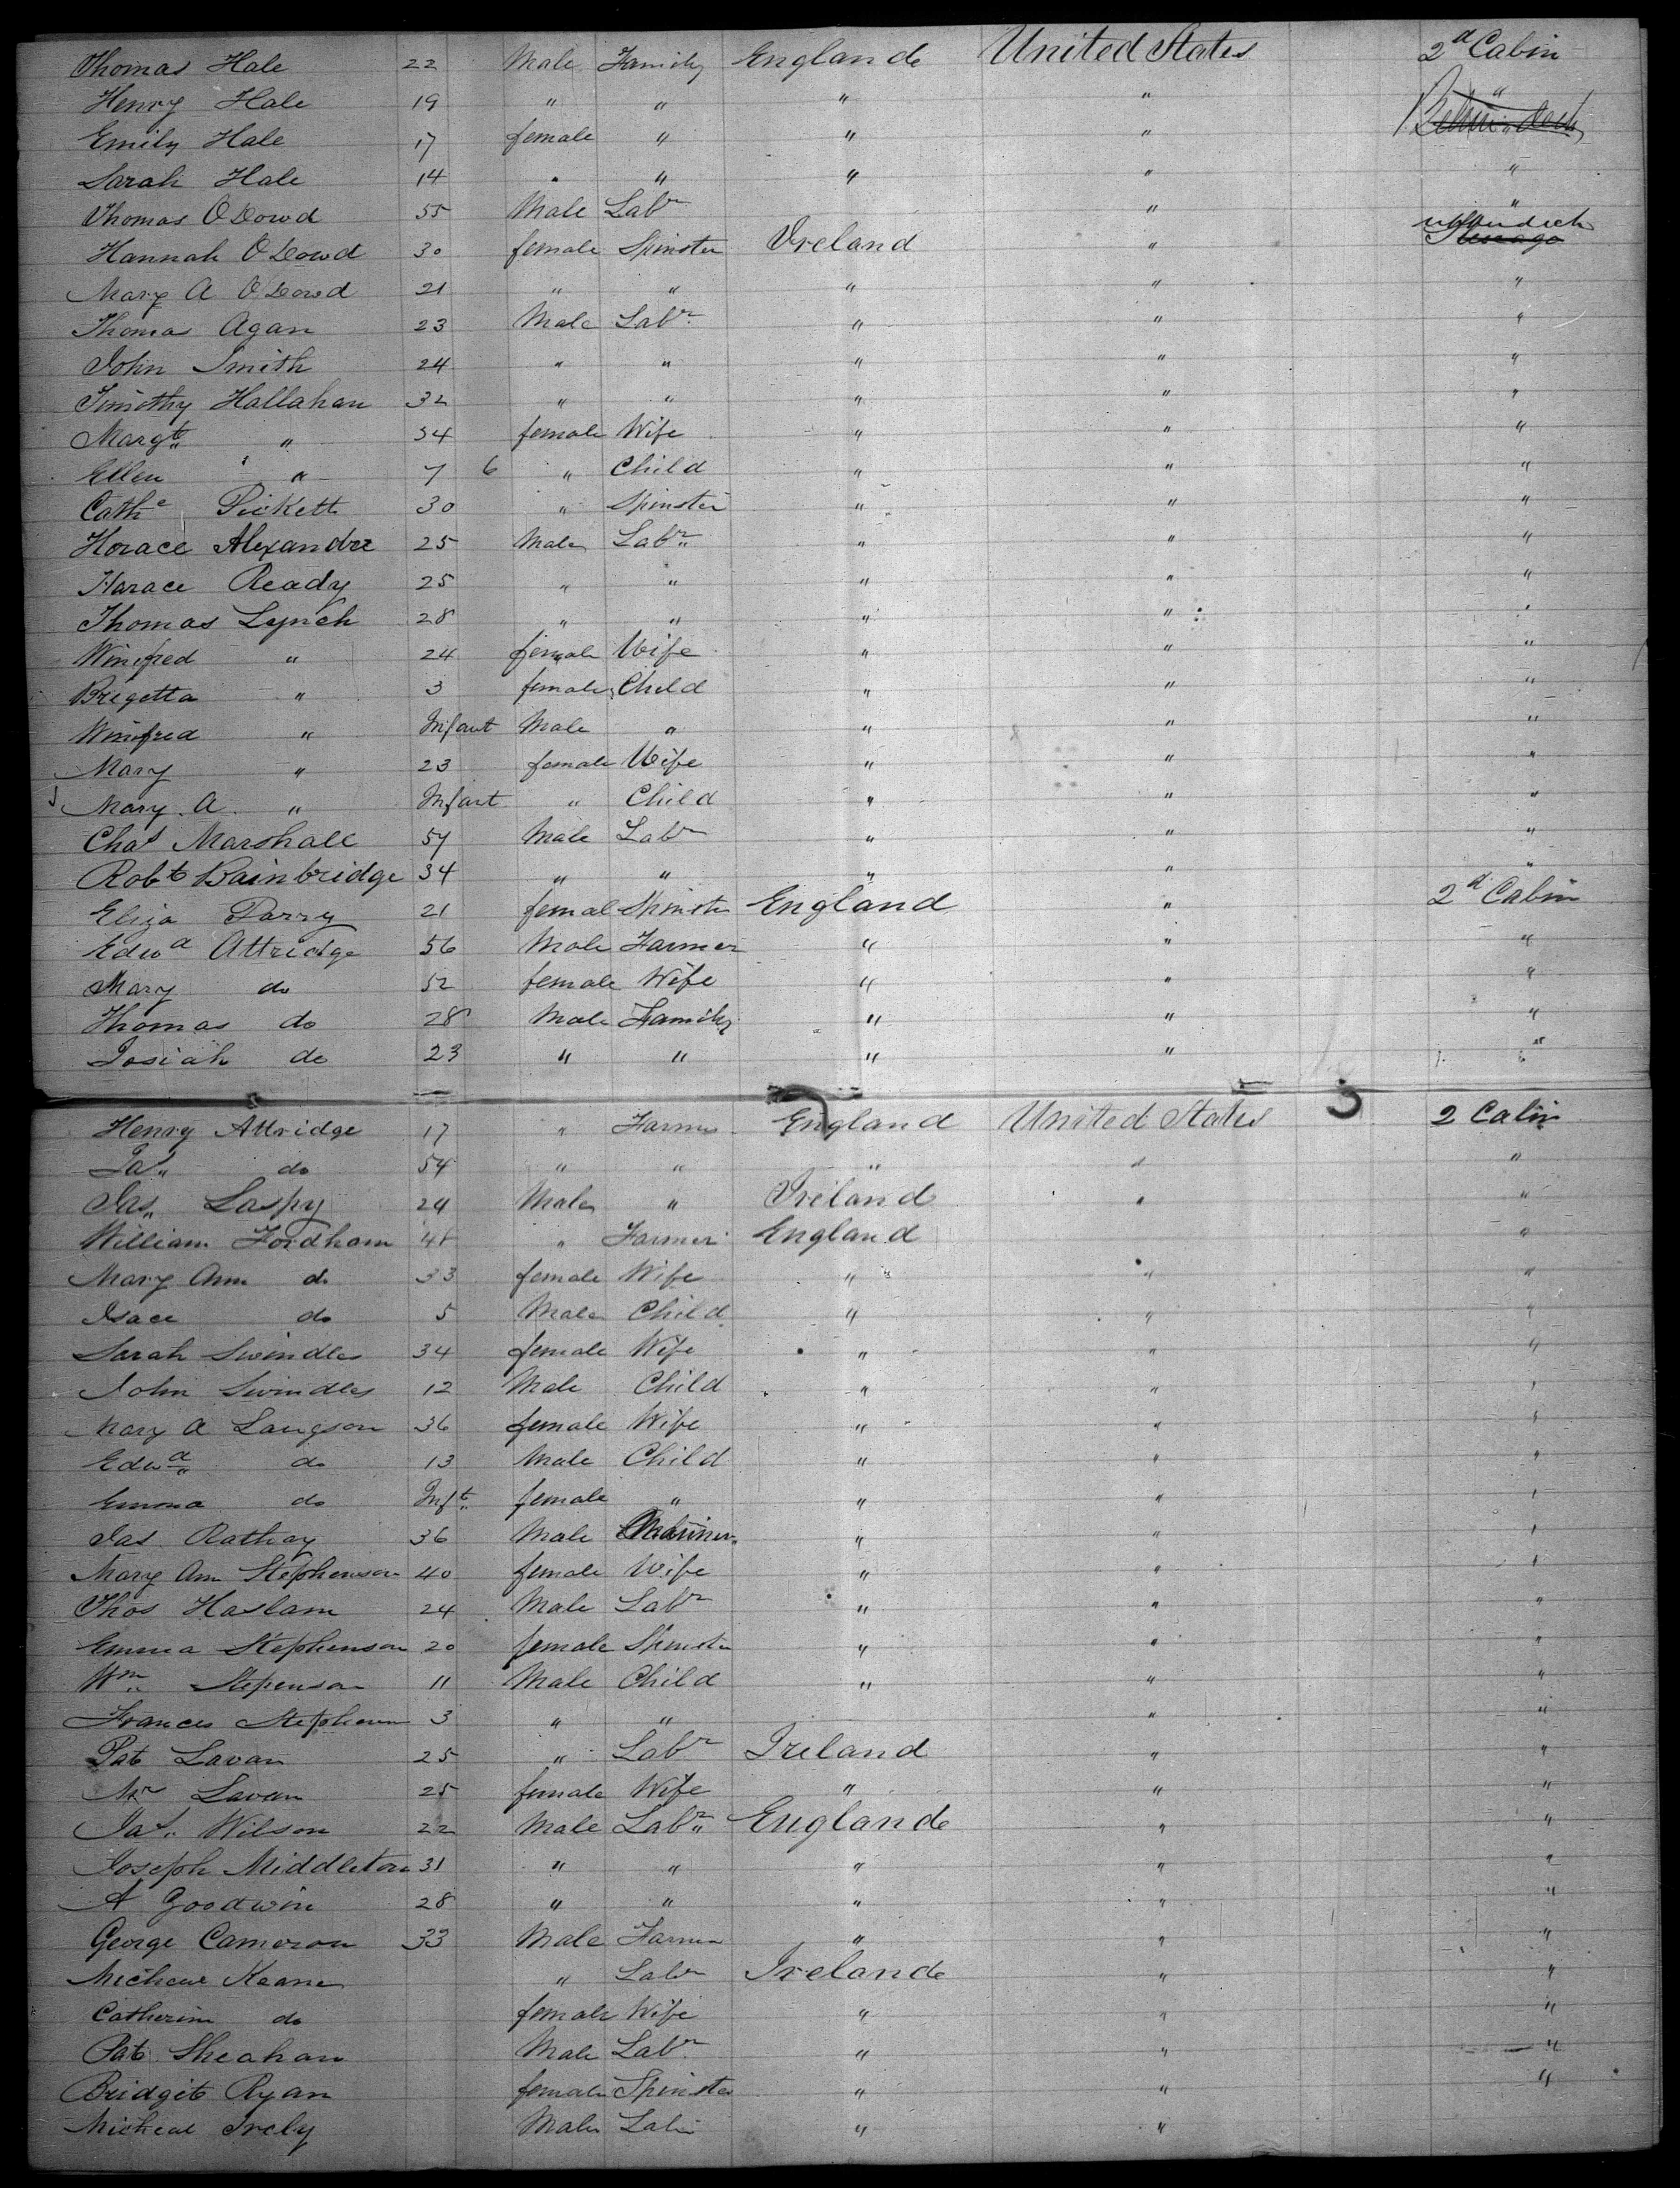 Thomas Hale 22 Male Family England United States 2d Cabin
Henry Hale 19 " " " " "
Emily Hale 17 female " " "
Sarah Hale 14 " " " " "
Thomas O Dowd 55 Male Labr " "
Hannah O Dowd 30 female Spinster Ireland "
Mary A O Dowd 21 " " " " "
Thomas Agan 23 Male Labr " " "
John Smith 24 " " " " "
Timothy Hallahan 32 " " " " "
Margt " 34 female Wife " " "
Ellen " 7 6 " Child " " "
Cathe Pickett 30 " Spinster " " "
Horace Alexander 25 Male Labr " " "
Harace Ready 25 " " " " "
Thomas Lynch 28 " " " " "
Winifred " 24 female Wife " " "
Bregetta " 3 female Child " " "
Winifred " Infant Male " " " "
Mary " 23 female Wife " " "
Mary A " Infant " Child " " "
Chas Marshall 57 Male Labr " " "
Robt Bainbridge 34 " " " " "
Eliza Parry 21 femal Spinster England " 2d Cabin
Edwd Attridge 56 Male Farmer " " "
Mary do 52 female Wife " " "
Thomas do 28 Male Family " " "
Josiah do 23 " " " " "
Henry Attridge 17 " Farmer England United States 2 Cabin
Jas do 54 " " " " "
Jas Laspy 24 Male " Ireland " "
William Fordham " Farmer England "
Mary Ann do 33 female Wife " " "
Isace do 5 Male Child " " "
Sarah Swindles 34 female Wife " " "
John Swindles 12 Male Child " " "
Mary A Langson 36 female Wife " " "
Edwd do 13 Male Child " " "
Emma do Inft female " " " "
Jas Rathay 36 Male Mariner " " "
Mary Ann Stephenson 40 female Wife " " "
Thos Haslam 24 Male Labr " " "
Emma Stephenson 20 female Spinster " " "
Wm Stepenson 11 Male Child " " "
Frances Stephenson 3 " " " "
Pat Lavan 25 " Labr Ireland " "
Mr Lavan 25 female Wife " " "
Jas Wilson 22 Male Labr England " "
Joseph Middleton 31 " " " " "
A Goodwin 28 " " " " "
George Cameron 33 Male Farmer " " "
Micheal Keane " Labr Ireland " "
Catherine do female Wife " " "
Pat Sheahan Male Labr " " "
Bridgit Ryan female Spinster " " "
Micheal Male Labr " "